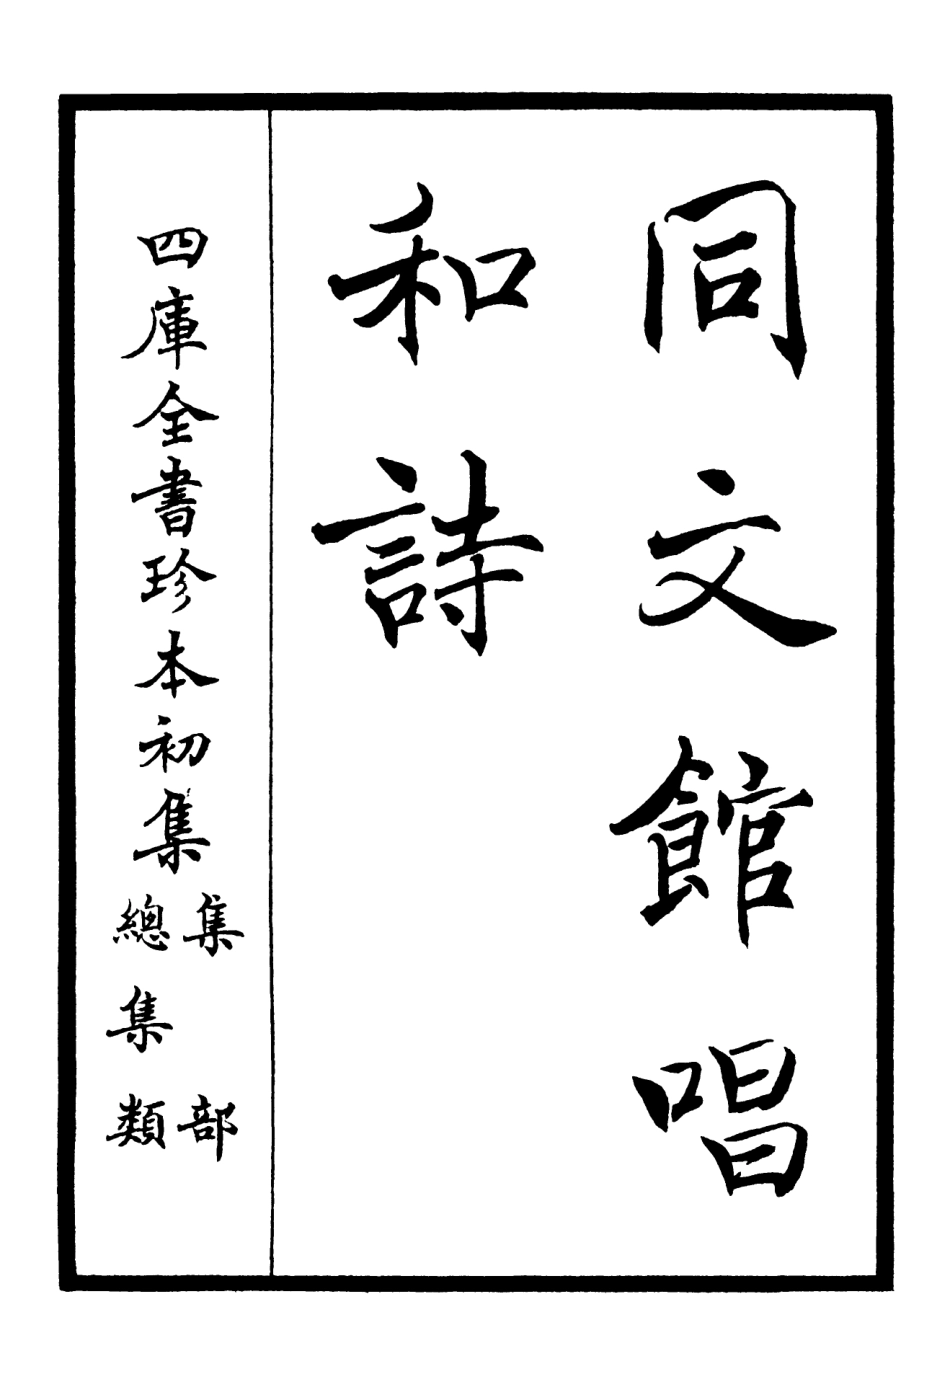 同文館唱
和詩
四庫全書珍本初集
集部
總集類